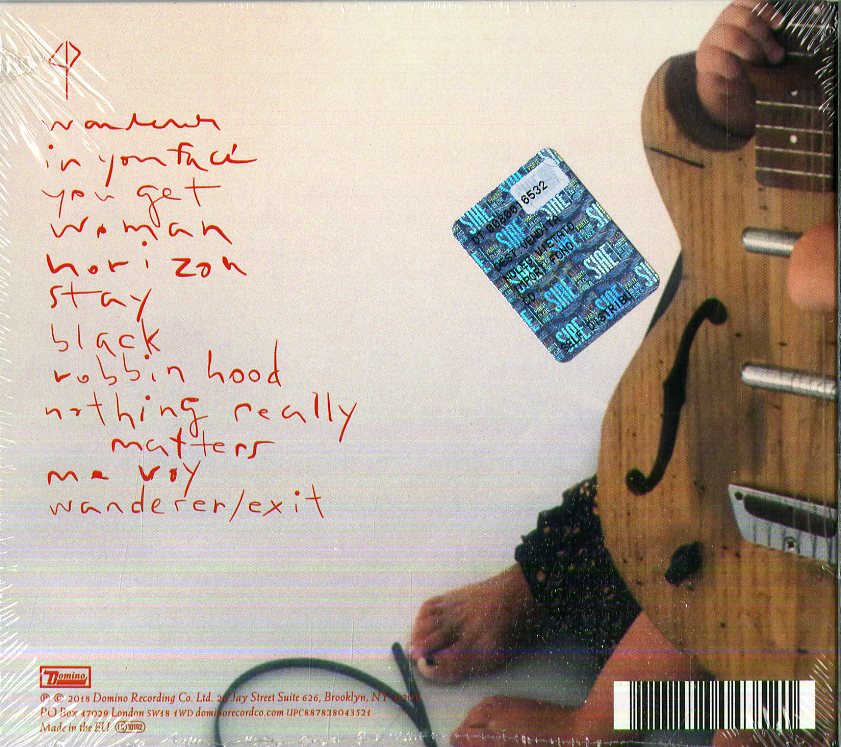 wanderer
in your face
you get
woman
horizon
stay
black
robbin hood
nothing really
matters
me voy
wanderer/exit
6532
SIAE
Domino
℗ © 2018 Domino Recording Co. Ltd. 20 Jay Street Suite 626, Brooklyn, NY
PO Box 47029 London SW18 1WD dominorecordco.com UPC887828043521
Made in the EU